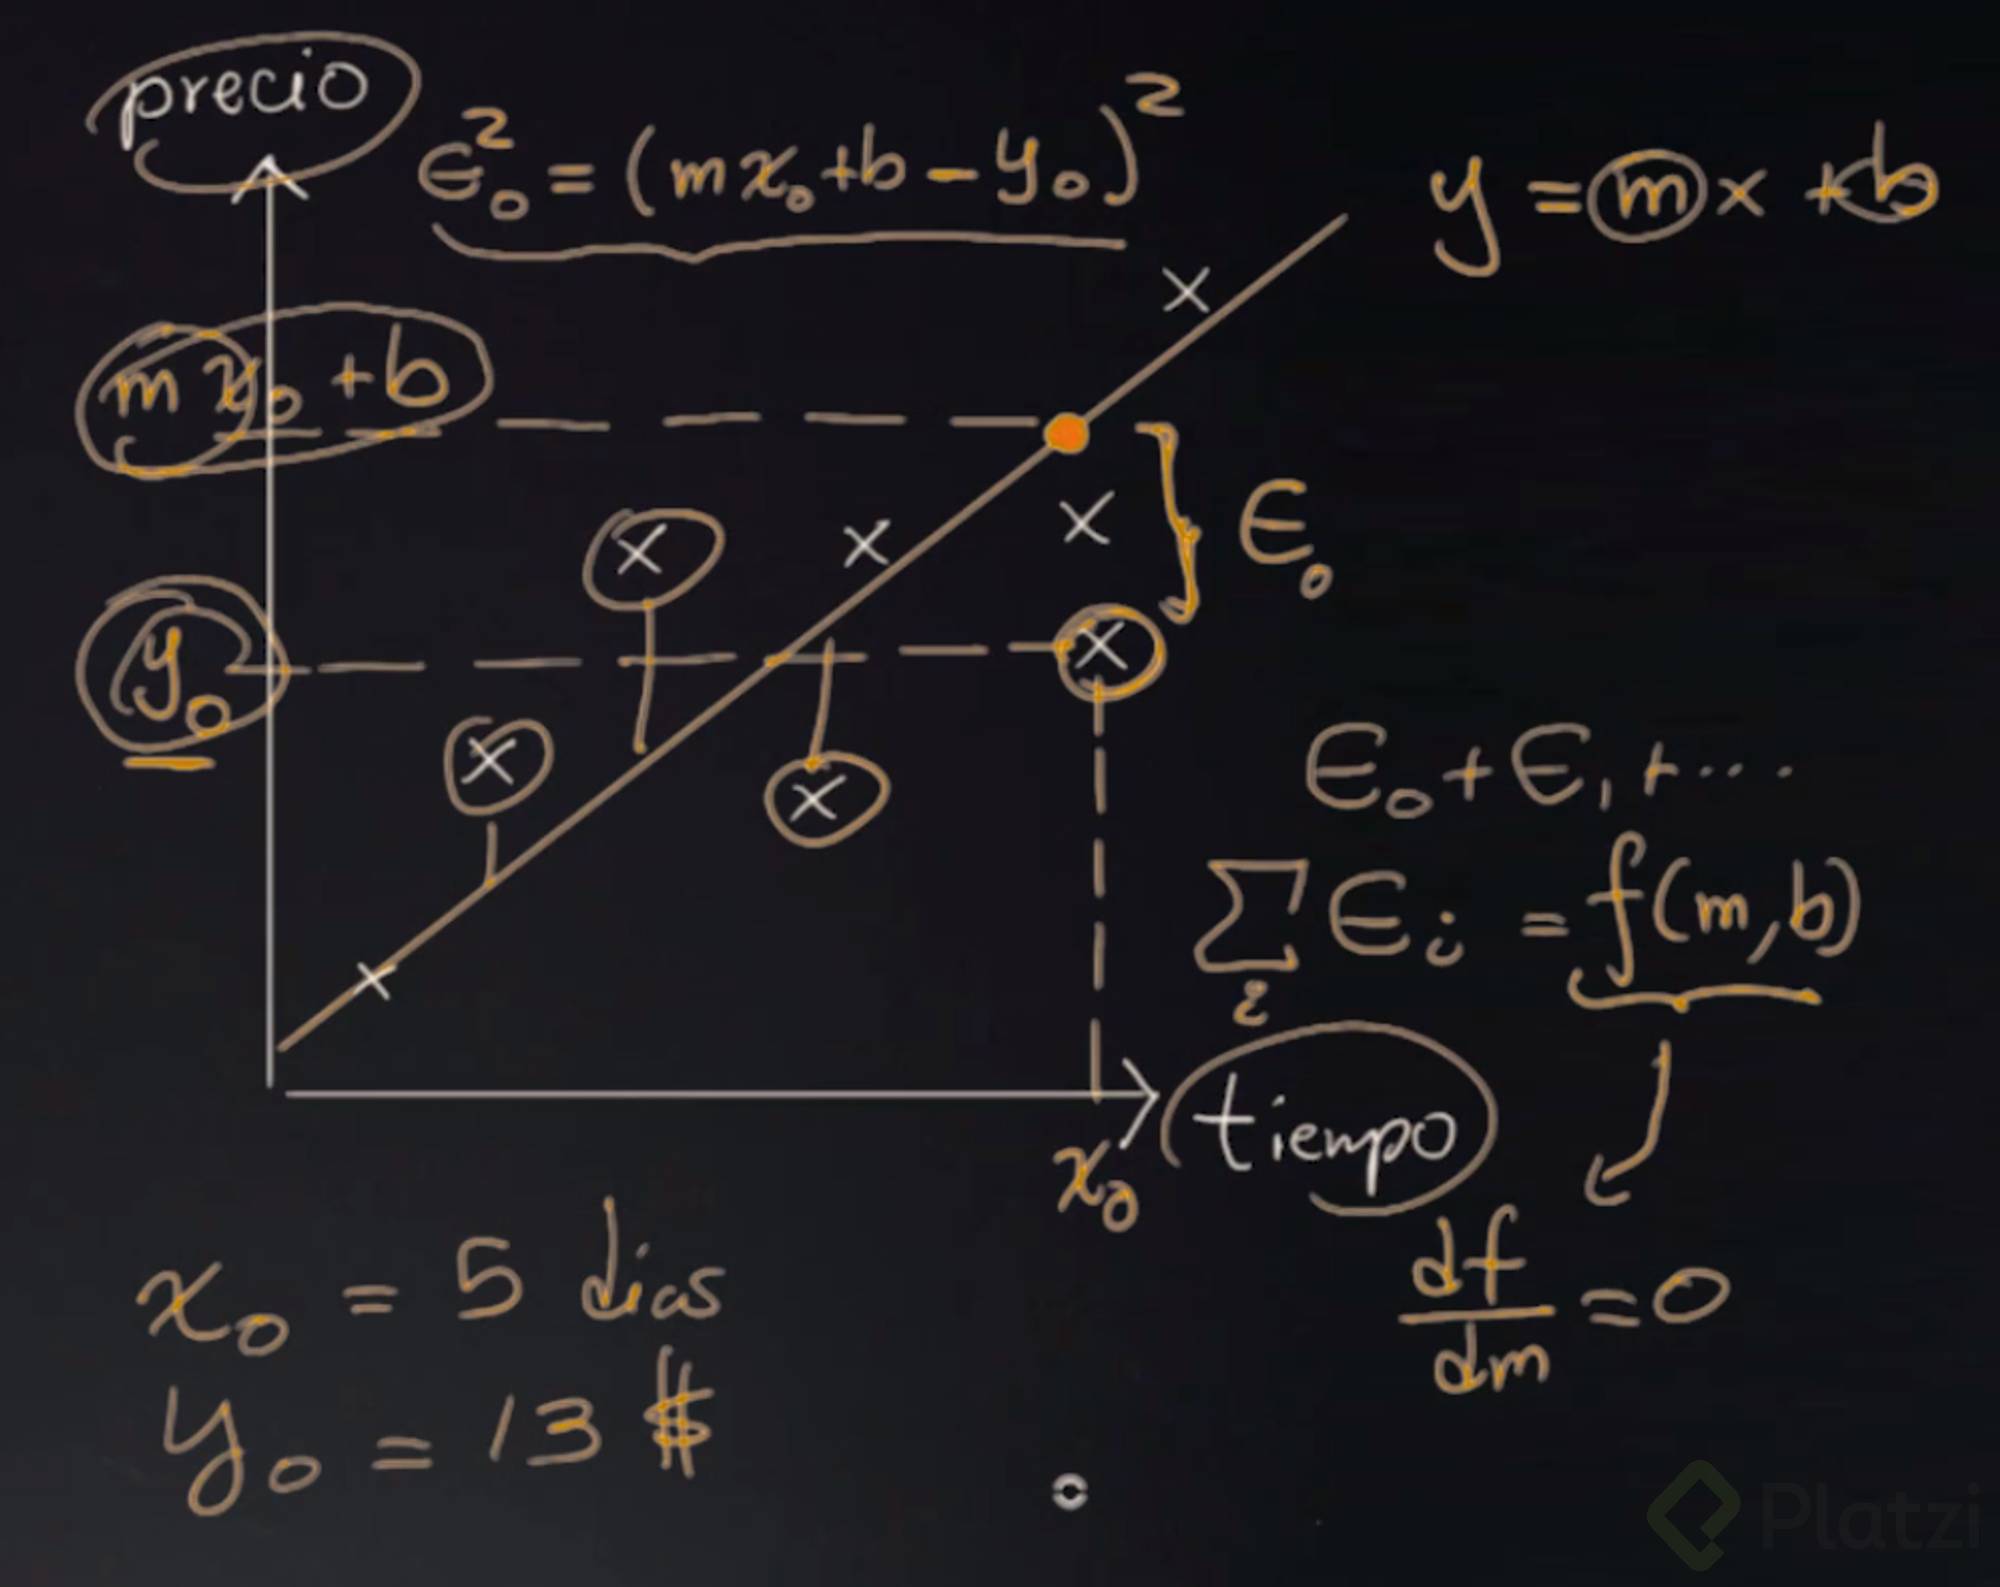 precio
ϵ₀² = (mx₀+b−y₀)²
y = mx + b
mx₀ + b
ϵ₀
y₀
ϵ₀ + ϵ₁ + ...
∑ᵢ ϵᵢ = f(m,b)
tiempo
x₀
df/dm = 0
x₀ = 5 dias
y₀ = 13 $
Platzi